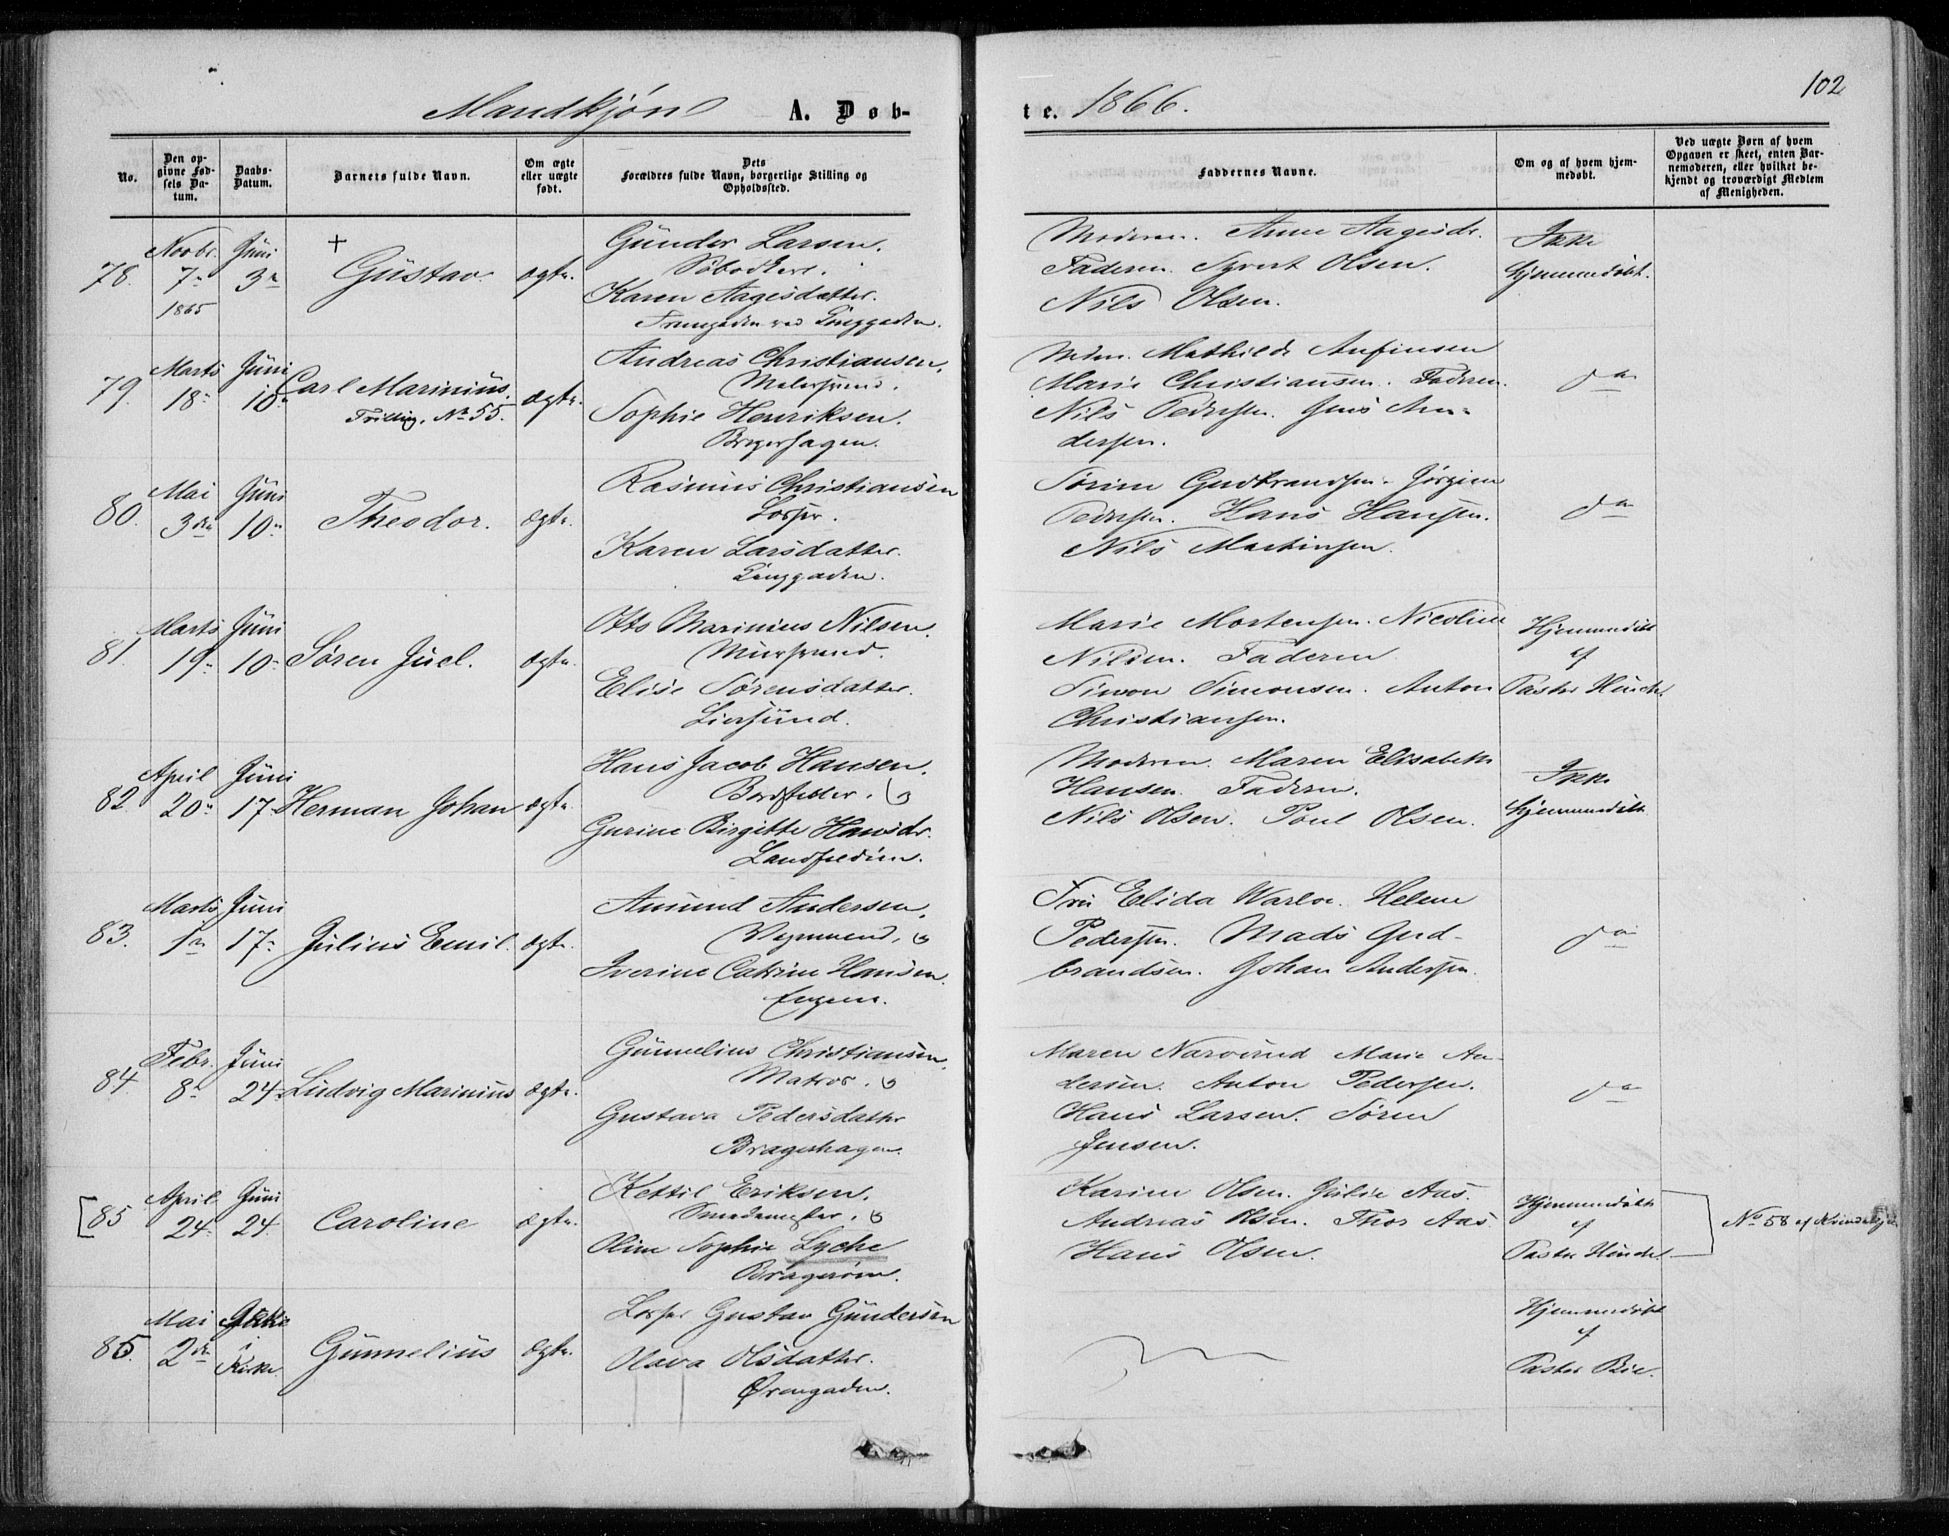 102
Mandkjøn A. Døb-
te. 1866.
No.
Den op-
givne Fød-
sels Da-
tum.
Daabs-
Datum.
Barnets fulde Navn.
Om ægte
eller uægte
født.
Dets
Forældres fulde Navn, borgerlige Stilling og
Opholdssted.
Faddernes Navne.
Om og af hvem hjem-
medøbt.
Ved uægte Børn af hvem
Opgaven er skeet, enten Bar-
nemoderen, eller hvilket be-
kjendt og troværdigt Medlem
af Menigheden.
78.
Novbr.
7
1865
Juni
3
+
Gustav.
ægte.
Gunder Larsen.
Karen Aagesdatter.
Moderen. Anne Aagesdr.
Faderen. Syvert Olsen.
Nils Olsen.
Ikke
hjemmedøbt.
79.
Marts
18
Juni
10
Carl Marinius.
Trilling. No 55.
ægte.
Andreas Christiansen,
Malersvend.
Sophie Henriksen.
Mathilde Anfinsen
Marie Christiansen. Faderen.
Nils Pedersen. Jens An-
dersen.
do
80.
Mai
3die
Juni
10
Theodor.
ægte.
Rasmus Christiansen
Losser.
Karen Larsdatter.
Sørine Gudbrandsen. Jørgine
Pedersen. Hans Hansen.
Nils Martinsen.
do
81.
Marts
19
Juni
10
Søren Juel.
ægte.
Otto Marinius Nilsen.
Muursvend.
Elise Sørensdatter.
Marie Mortensen. Nicoline
Nilsen. Faderen
Simon Simonsen. Anton
Christiansen.
Hjemmedøbt
af
Pastor
82
April
20
Juni
17
Herman Johan
ægte.
Hans Jacob Hansen.
Gurine Birgitte Hansdr.
Moderen. Maren Elisabeth
Hansen. Faderen.
Nils Olsen. Poul Olsen.
Ikke
hjemmedøbt
83.
Marts
1
Juni
17
Julius Emil.
ægte.
Amund Andersen,
Iverine Catrine Hansen.
Engene.
Fru Elida Warloe. Helene
Pedersen. Mads Gud-
brandsen. Johan Andersen.
do
84.
Febr.
8
Juni
24
Ludvig Marinius
ægte.
Gunnelius Christiansen,
Matros.
Gustava Pedersdatter
Bragerhagen.
Maren Narverud Marie An-
dersen. Anton Pedersen.
Hans Larsen. Søren
Jensen.
do
85
April
24
Juni
24
Caroline
ægte.
Kettil Eriksen.
Smedemester.
Oline Sophie Lyche
Karine Olsen. Julie Aas.
Andreas Olsen. Thor Aas
Hans Olsen.
Hjemmedøbt
af
Pastor
No 58 af
85.
Mai
2den
Ikke
i
Kirke
Gunnelius
ægte.
Losser Gustav Gundersen
Olava Olsdatter.
Ørengaden.
Hjemmedøbt
af
Pastor Bie.